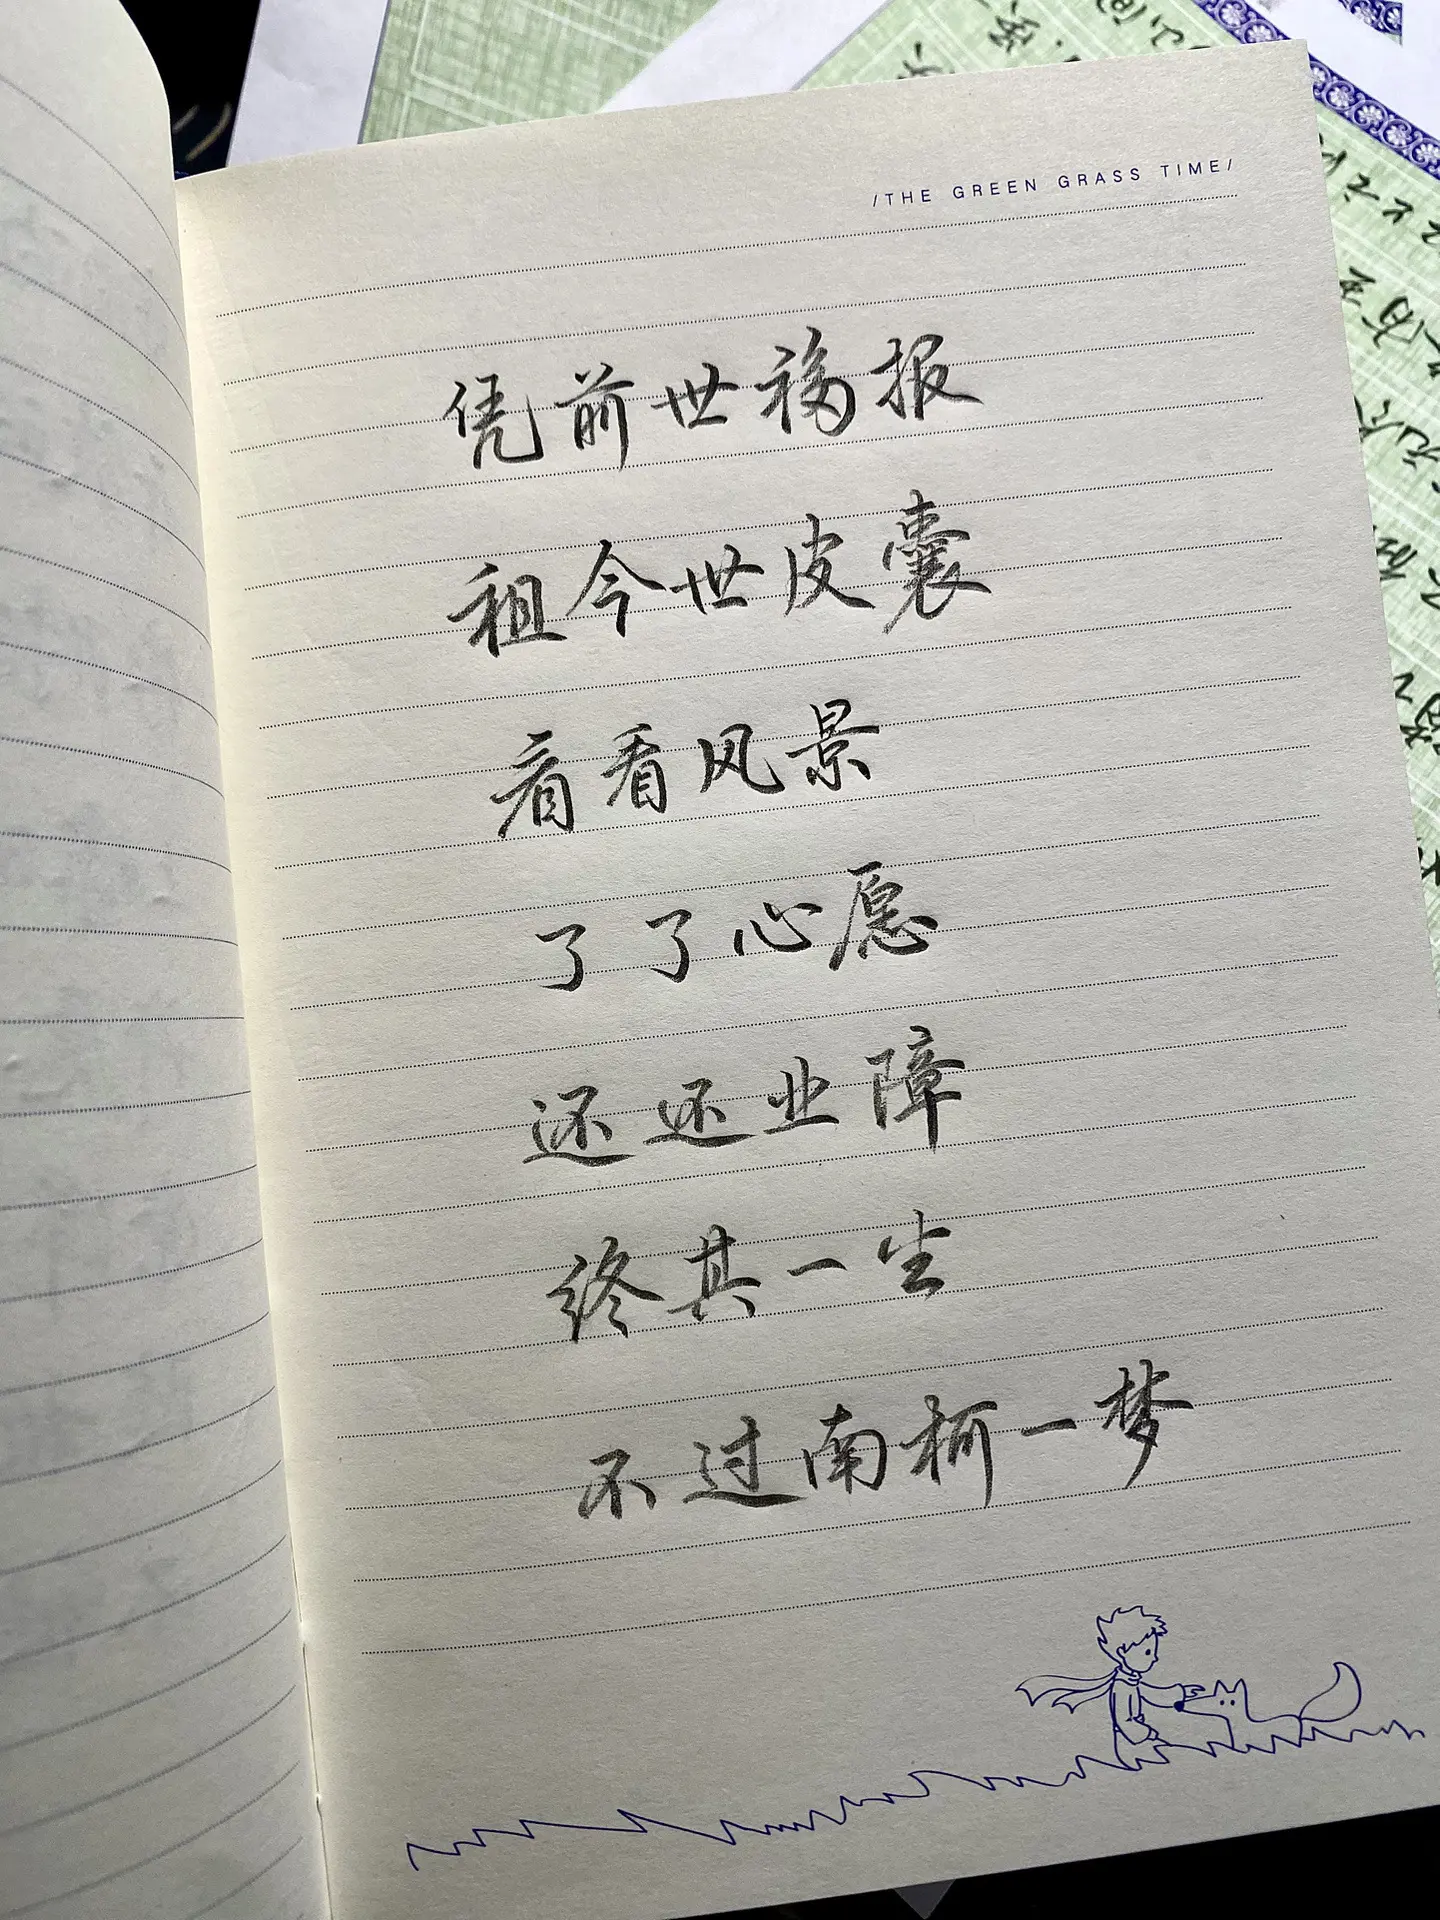 /THE GREEN GRASS TIME/
凭前世福报
租今世皮囊
看看风景
了了心愿
还还业障
终其一尘
不过南柯一梦